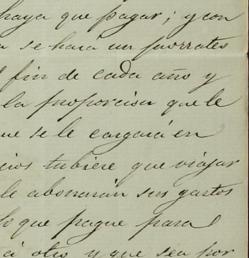 haya que pagar; y con
se hará un prorrateo
fin de cada año y
la proporcion que le
que se le cargará en
cios tubiere que viajar
le abonarán sus gastos
lo que pague para
á otro y que sea por